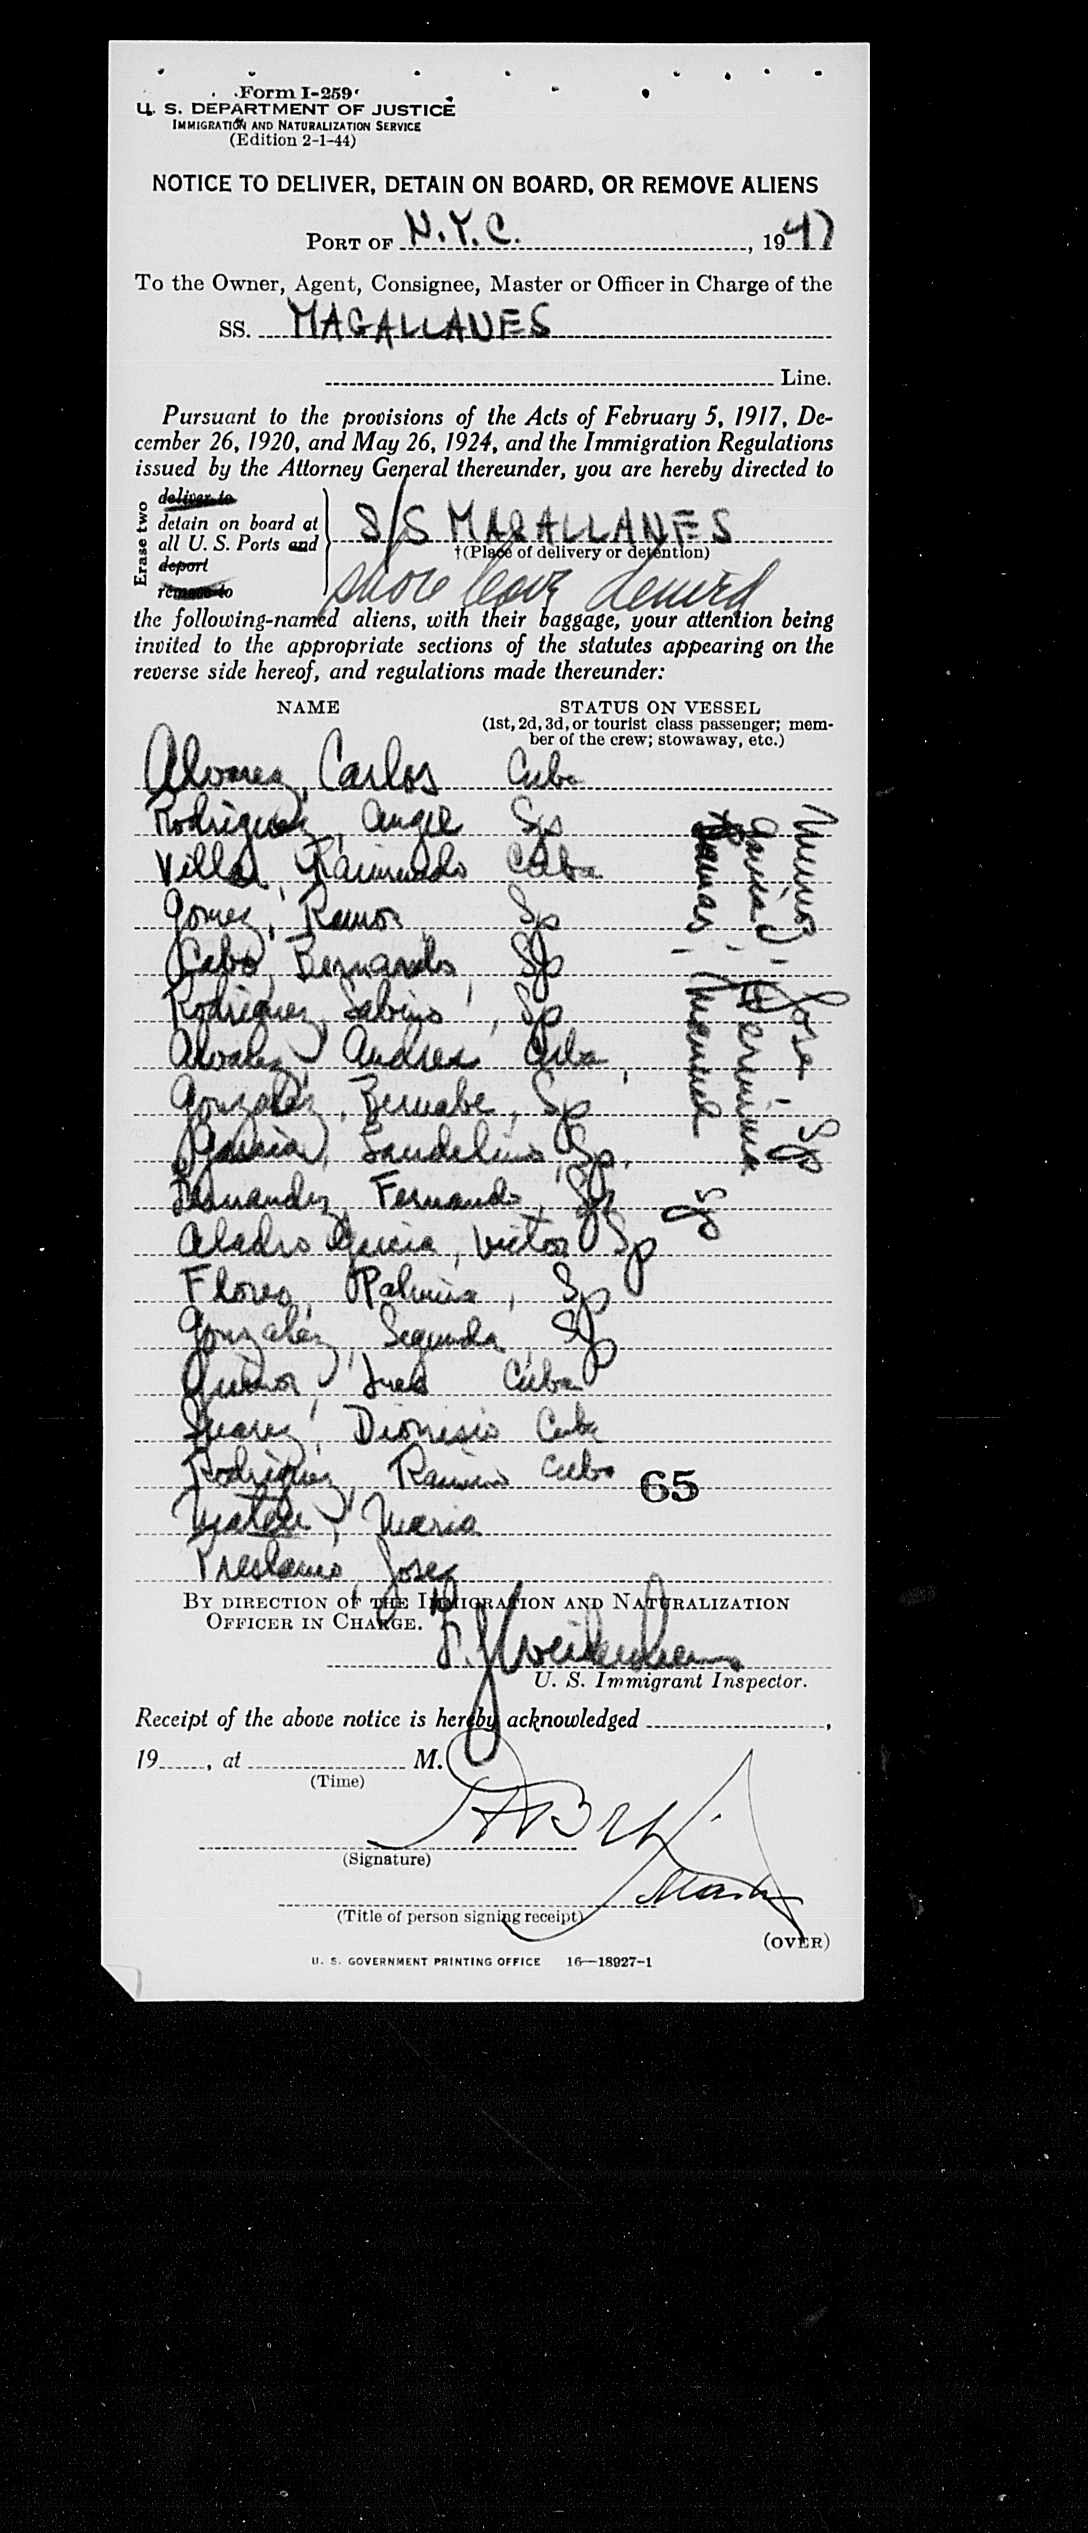 Form I-259
U. S. DEPARTMENT OF JUSTICE
IMMIGRATION AND NATURALIZATION SERVICE
(Edition 2-1-44)
NOTICE TO DELIVER, DETAIN ON BOARD, OR REMOVE ALIENS
PORT OF N.Y.C., 1947
To the Owner, Agent, Consignee, Master or Officer in Charge of the
SS. MAGALLANES
Line.
Pursuant to the provisions of the Acts of February 5, 1917, De-
cember 26, 1920, and May 26, 1924, and the Immigration Regulations
issued by the Attorney General thereunder, you are hereby directed to
Erase two
deliver to
detain on board at
all U. S. Ports and
deport
remove to
S/S MAGALLANES
†(Place of delivery or detention)
shore leave denied
the following-named aliens, with their baggage, your attention being
invited to the appropriate sections of the statutes appearing on the
reverse side hereof, and regulations made thereunder:
NAME
STATUS ON VESSEL
(1st, 2d, 3d, or tourist class passenger; mem-
ber of the crew; stowaway, etc.)
Alvarez, Carlos Cuba
Rodriguez, Angel Sp
Villar, Raimundo Cuba
Gomez, Ramon Sp
Cabo, Bernardo Sp
Rodriguez, Sabino, Sp
Alvarez, Andres Cuba
Gonzalez, Bernabe, Sp
Garcia, Sp.
Fernandez, Fernando, Sp
Aladro Garcia, Victor Sp
Flores, Palmira, Sp
Gonzalez, Segunda, Sp
Ines Cuba
Suarez, Dionisio Cuba
Rodriguez, Ramiro Cuba
Mateu, Maria
Jose
- Jose Sp
Garcia - Herminia
- Manuel Sp
65
BY DIRECTION OF THE IMMIGRATION AND NATURALIZATION
OFFICER IN CHARGE.
U. S. Immigrant Inspector.
Receipt of the above notice is hereby acknowledged ,
19 , at M.
(Time)
(Signature)
(Title of person signing receipt)
(OVER)
U. S. GOVERNMENT PRINTING OFFICE 16—18927-1